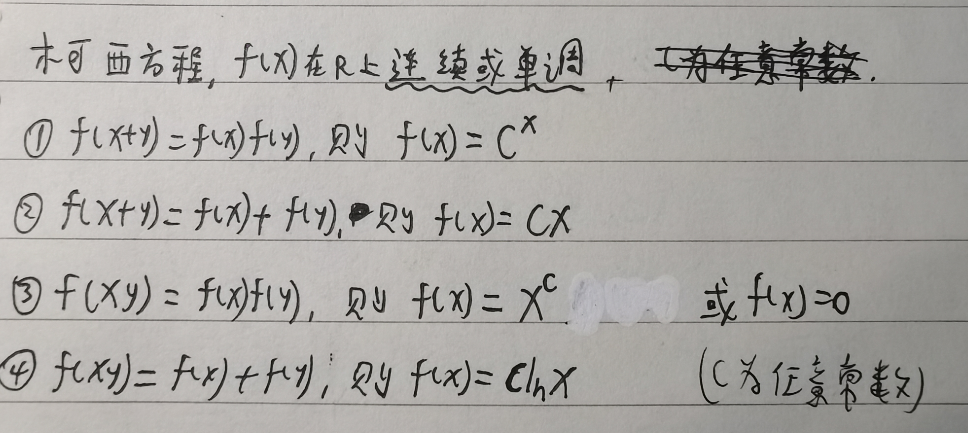 柯西方程, f(x)在R上连续或单调,
① f(x+y)=f(x)f(y), 则 f(x)=C^x
② f(x+y)=f(x)+f(y), 则 f(x)=Cx
③ f(xy)=f(x)f(y), 则 f(x)=x^c 或f(x)=0
④ f(xy)=f(x)+f(y), 则 f(x)=Clnx (C为任意常数)